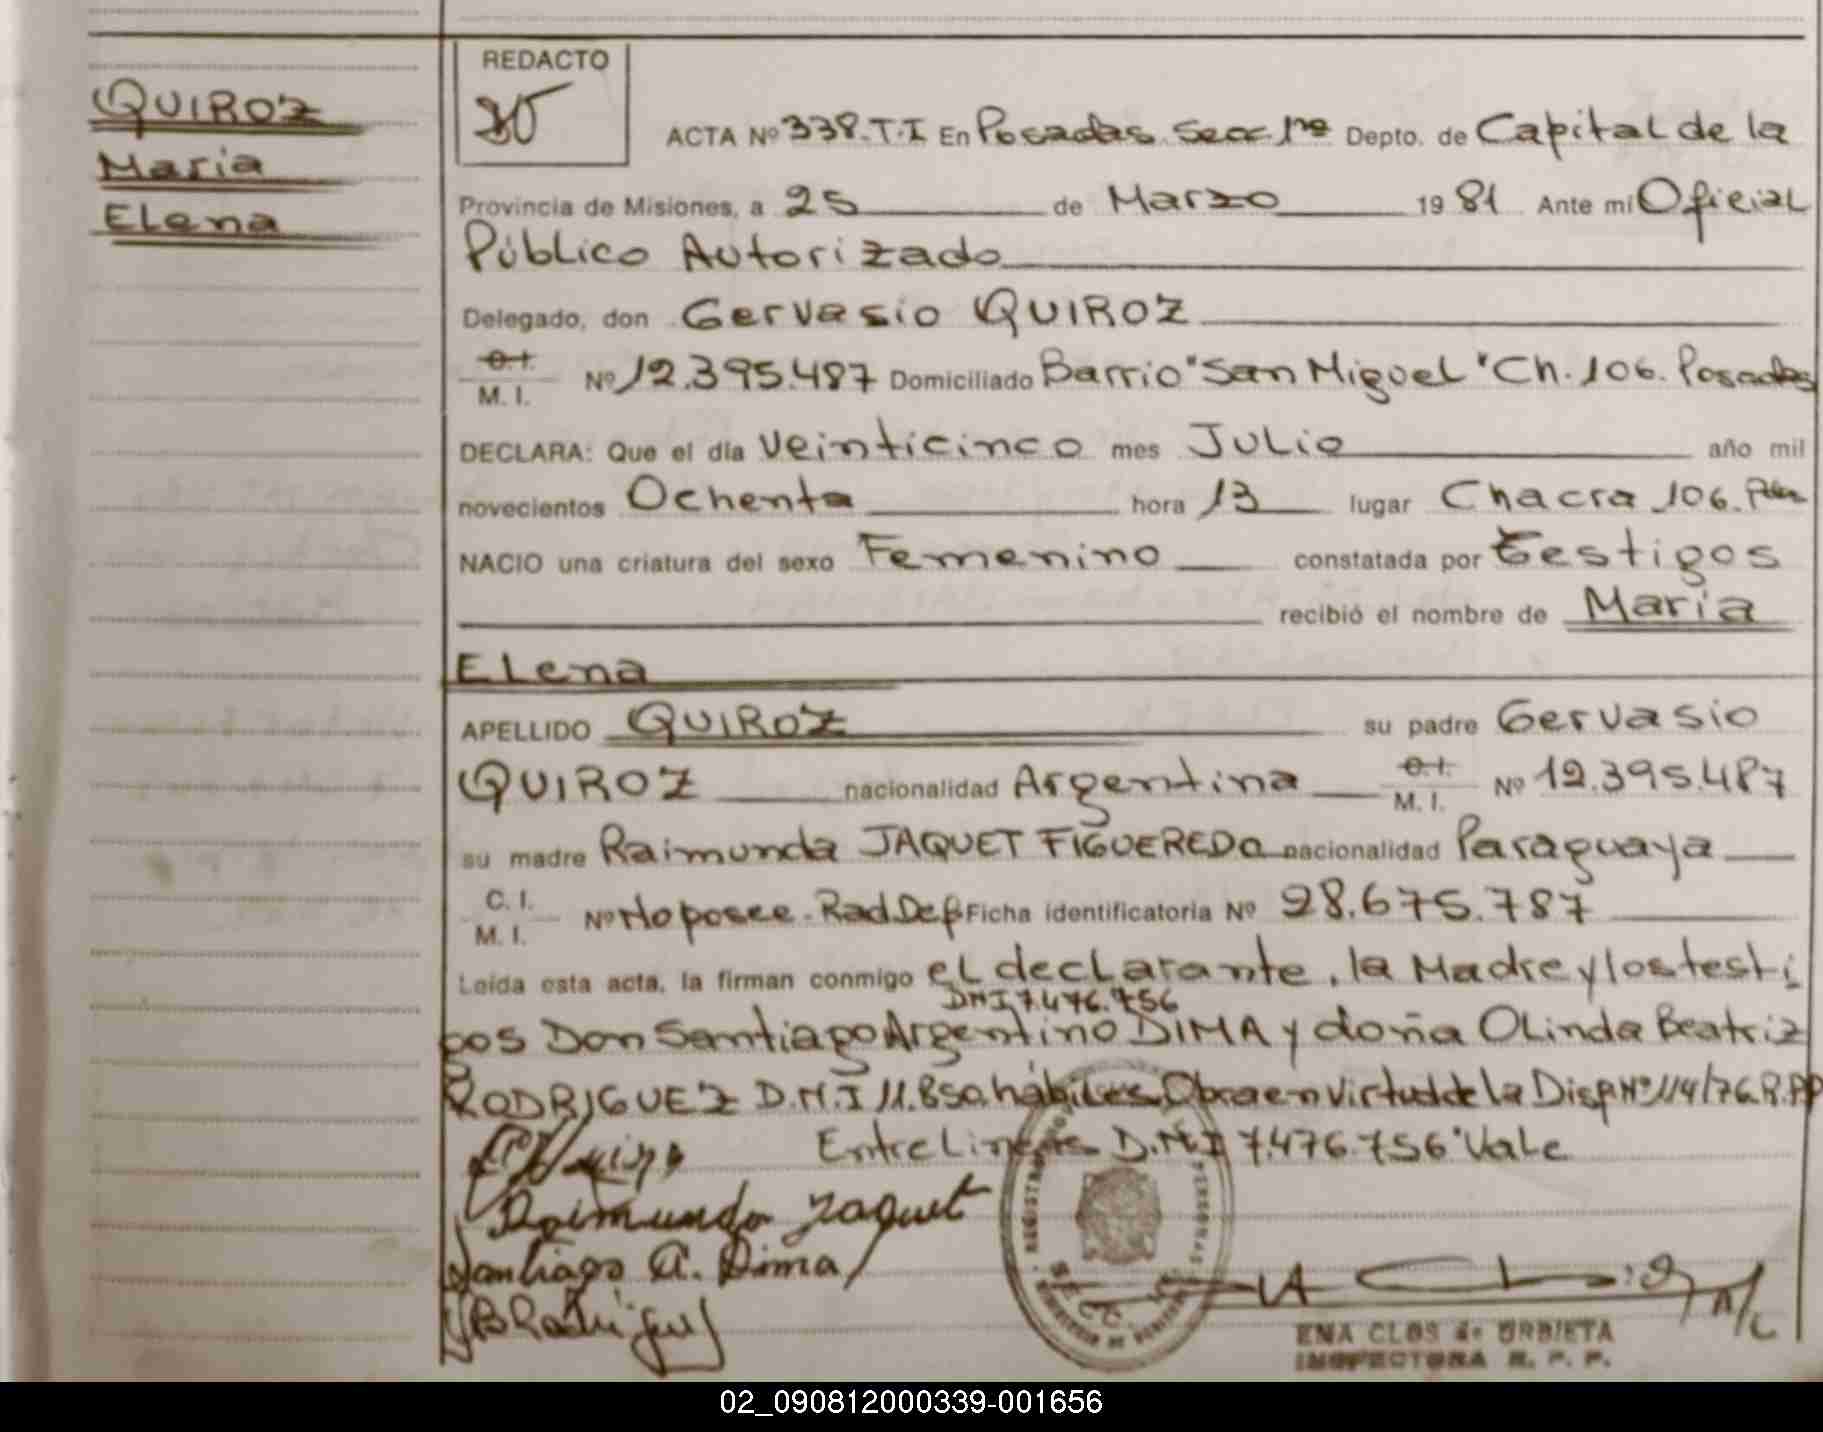 QUIROZ
Maria
Elena
REDACTO
ACTA Nº 338.T.I En Posadas. Secc. 1ra Depto. de Capital de la
Provincia de Misiones, a 25 de Marzo 1981 Ante mí Oficial
Público Autorizado
Delegado, don Gervasio QUIROZ
C.I.
M.I. Nº 12.395.487 Domiciliado Barrio "San Miguel" Ch. 106. Posadas
DECLARA: Que el día veinticinco mes Julio año mil
novecientos Ochenta hora 13 lugar Chacra 106.
NACIO una criatura del sexo Femenino constatada por Testigos
recibió el nombre de Maria
Elena
APELLIDO QUIROZ su padre Gervasio
QUIROZ nacionalidad Argentina C.I. M.I. Nº 12.395.487
su madre Raimunda JAQUET FIGUEREDO nacionalidad Paraguaya
C.I.
M.I. Nº No posee. Rad. Def Ficha identificatoria Nº 28.675.787
Leída esta acta, la firman conmigo el declarante, la Madre y los testi
DNI 7.476.756
gos Don Santiago Argentino DIMA y doña Olinda Beatriz
RODRIGUEZ D.N.I 11.850. hábiles. Obra en virtud de la Disp Nº 114/76. R.PP
Entre Lineas D.N.I 7.476.756 "Vale
Raimunda Jaquet
Santiago A. Dima
ENA CLOS de URBIETA
INSPECTORA R. P. P.
02_090812000339-001656